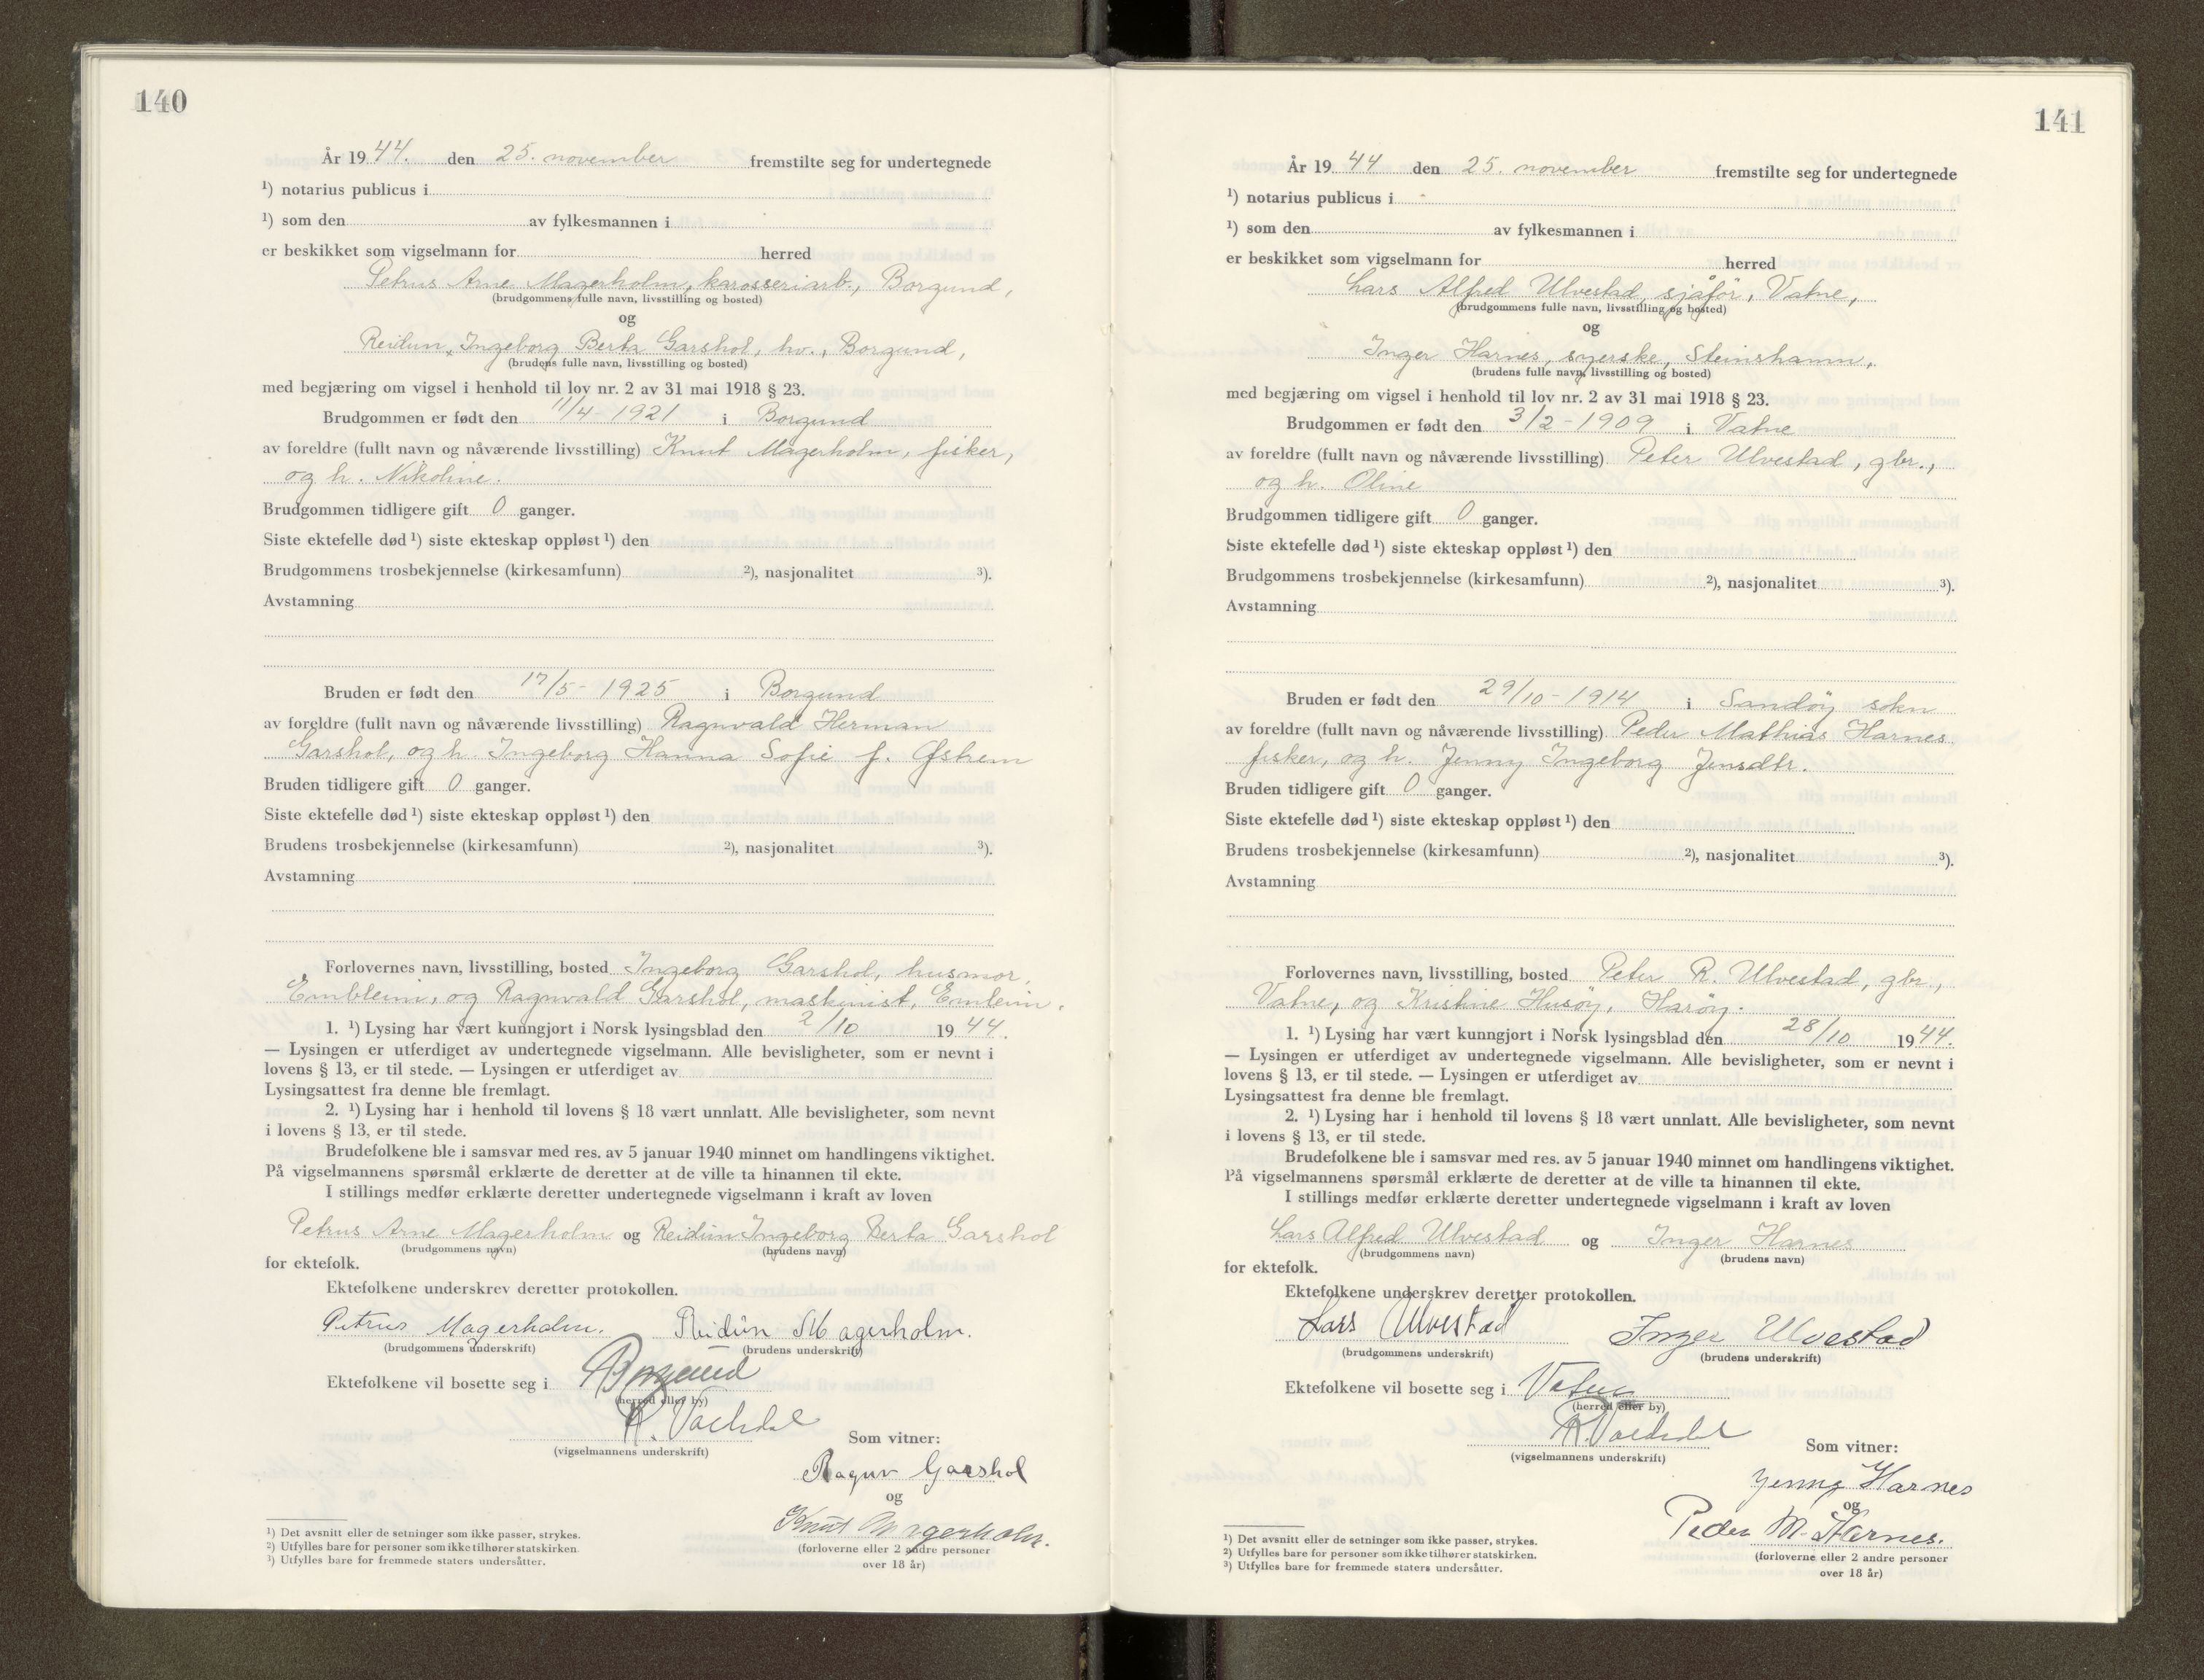 140
År 19 44. den 25. november fremstilte seg for undertegnede
¹) notarius publicus i
¹) som den av fylkesmannen i
er beskikket som vigselmann for herred
Petrus Arne Magerholm, karosseriarb., Borgund,
(brudgommens fulle navn, livsstilling og bosted)
og
Reidun Ingeborg Berta Garshol, hv., Borgund,
(brudens fulle navn, livsstilling og bosted)
med begjæring om vigsel i henhold til lov nr. 2 av 31 mai 1918 § 23.
Brudgommen er født den 11/4-1921 i Borgund
av foreldre (fullt navn og nåværende livsstilling) Knut Magerholm, fisker,
og h. Nikoline.
Brudgommen tidligere gift 0 ganger.
Siste ektefelle død ¹) siste ekteskap oppløst ¹) den
Brudgommens trosbekjennelse (kirkesamfunn) ²), nasjonalitet ³).
Avstamning
Bruden er født den 17/5-1925 i Borgund
av foreldre (fullt navn og nåværende livsstilling) Ragnvald Herman
Garshol, og h. Ingeborg Hanna Sofie f. Østrem
Bruden tidligere gift 0 ganger.
Siste ektefelle død ¹) siste ekteskap oppløst ¹) den
Brudens trosbekjennelse (kirkesamfunn) ²), nasjonalitet ³).
Avstamning
Forlovernes navn, livsstilling, bosted Ingeborg Garshol, husmor,
Embleim, og Ragnvald Garshol, maskinist, Emleim.
1. ¹) Lysing har vært kunngjort i Norsk lysingsblad den 2/10 19 44.
— Lysingen er utferdiget av undertegnede vigselmann. Alle bevisligheter, som er nevnt i
lovens § 13, er til stede. — Lysingen er utferdiget av
Lysingsattest fra denne ble fremlagt.
2. ¹) Lysing har i henhold til lovens § 18 vært unnlatt. Alle bevisligheter, som nevnt
i lovens § 13, er til stede.
Brudefolkene ble i samsvar med res. av 5 januar 1940 minnet om handlingens viktighet.
På vigselmannens spørsmål erklærte de deretter at de ville ta hinannen til ekte.
I stillings medfør erklærte deretter undertegnede vigselmann i kraft av loven
Petrus Arne Magerholm og Reidun Ingeborg Berta Garshol
(brudgommens navn) (brudens navn)
for ektefolk.
Ektefolkene underskrev deretter protokollen.
Petrus Magerholm. Reidun Magerholm.
(brudgommens underskrift) (brudens underskrift)
Ektefolkene vil bosette seg i Borgund
(herred eller by)
(vigselmannens underskrift)
Som vitner:
Ragnv Garshol
og
Knut Magerholm.
(forloverne eller 2 andre personer
over 18 år)
¹) Det avsnitt eller de setninger som ikke passer, strykes.
²) Utfylles bare for personer som ikke tilhører statskirken.
³) Utfylles bare for fremmede staters undersåtter.
141
År 19 44 den 25. november fremstilte seg for undertegnede
¹) notarius publicus i
¹) som den av fylkesmannen i
er beskikket som vigselmann for herred
Lars Alfred Ulvestad, sjåfør, Vatne,
(brudgommens fulle navn, livsstilling og bosted)
og
Inger Harnes, syerske, Steinshamn,
(brudens fulle navn, livsstilling og bosted)
med begjæring om vigsel i henhold til lov nr. 2 av 31 mai 1918 § 23.
Brudgommen er født den 3/2-1909 i Vatne
av foreldre (fullt navn og nåværende livsstilling) Peter Ulvestad, gbr.,
og h. Oline
Brudgommen tidligere gift 0 ganger.
Siste ektefelle død ¹) siste ekteskap oppløst ¹) den
Brudgommens trosbekjennelse (kirkesamfunn) ²), nasjonalitet ³).
Avstamning
Bruden er født den 29/10-1914 i Sandøy sokn
av foreldre (fullt navn og nåværende livsstilling) Peder Mathias Harnes
fisker, og h. Jenny Ingeborg Jensdtr.
Bruden tidligere gift 0 ganger.
Siste ektefelle død ¹) siste ekteskap oppløst ¹) den
Brudens trosbekjennelse (kirkesamfunn) ²), nasjonalitet ³).
Avstamning
Forlovernes navn, livsstilling, bosted Peter R. Ulvestad, gbr.,
Vatne, og Kristine Husøy, Harøy.
1. ¹) Lysing har vært kunngjort i Norsk lysingsblad den 28/10 19 44.
— Lysingen er utferdiget av undertegnede vigselmann. Alle bevisligheter, som er nevnt i
lovens § 13, er til stede. — Lysingen er utferdiget av
Lysingsattest fra denne ble fremlagt.
2. ¹) Lysing har i henhold til lovens § 18 vært unnlatt. Alle bevisligheter, som nevnt
i lovens § 13, er til stede.
Brudefolkene ble i samsvar med res. av 5 januar 1940 minnet om handlingens viktighet.
På vigselmannens spørsmål erklærte de deretter at de ville ta hinannen til ekte.
I stillings medfør erklærte deretter undertegnede vigselmann i kraft av loven
Lars Alfred Ulvestad og Inger Harnes
(brudgommens navn) (brudens navn)
for ektefolk.
Ektefolkene underskrev deretter protokollen.
Lars Ulvestad Inger Ulvestad
(brudgommens underskrift) (brudens underskrift)
Ektefolkene vil bosette seg i Vatne
(herred eller by)
(vigselmannens underskrift)
Som vitner:
Jenny Harnes
og
Peder M. Harnes.
(forloverne eller 2 andre personer
over 18 år)
¹) Det avsnitt eller de setninger som ikke passer, strykes.
²) Utfylles bare for personer som ikke tilhører statskirken.
³) Utfylles bare for fremmede staters undersåtter.